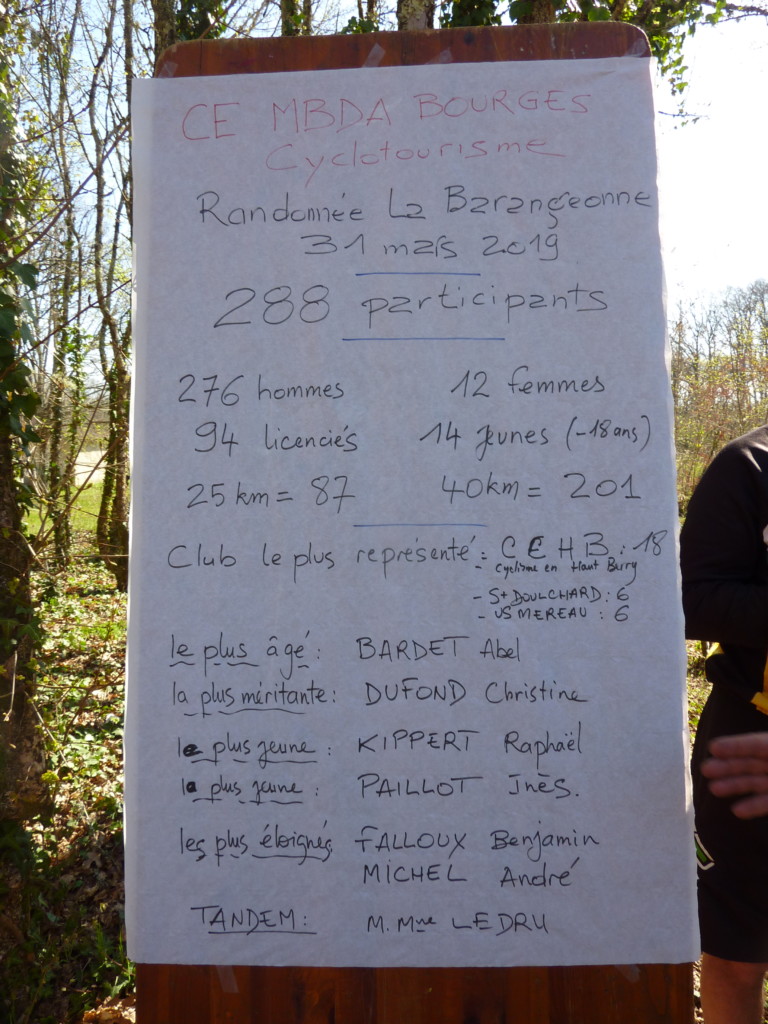 CE MBDA BOURGES
Cyclotourisme
Randonnée La Barangeonne
31 mars 2019
288 participants
276 hommes 12 femmes
94 licenciés 14 jeunes (-18 ans)
25 km = 87 40km = 201
Club le plus représenté : - CEHB : 18
cyclisme en Haut Berry
- St DOULCHARD : 6
- US MEREAU : 6
le plus âgé : BARDET Abel
la plus méritante : DUFOND Christine
le plus jeune : KIPPERT Raphaël
la plus jeune : PAILLOT Inès.
les plus éloignés FALLOUX Benjamin
MICHEL André
TANDEM : M. Mme LEDRU